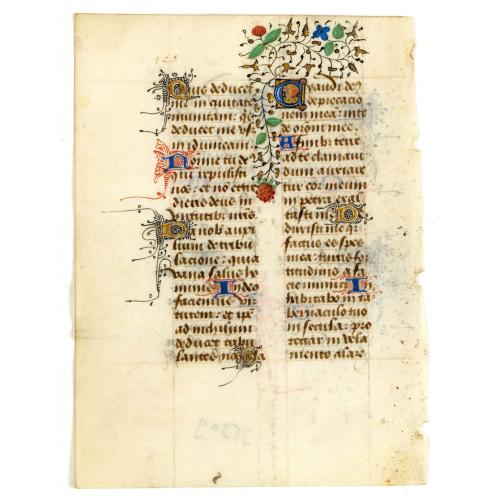 Quis deducet
me in civitatē
munitam: quis
deducet me usq̃
in ydumeam
Nonne tu de
qui repulisti
nos: et nō egre
dieris deus in
virtutibꝰ nr̄is
Da nobis auxi
lium de tribu
lacione: quia
vana salus ho
minis In deo
faciemus vir
tutem: et ipē
ad nichilum
deducet tribu
lantes nos Gla
Exaudi deꝰ
deprecacio
nem meā: intē
de orōni mee
A finibꝰ terre
ad te clamavi
dum anxiare
tur cor meum
in petra exal
tasti me
Deduxisti me: qr
factus es spes
mea: turris for
titudinis a fa
cie inimici In
habitabo in ta
bernaculo tuo
in secula: pro
tegar in vela
mento alarꝫ